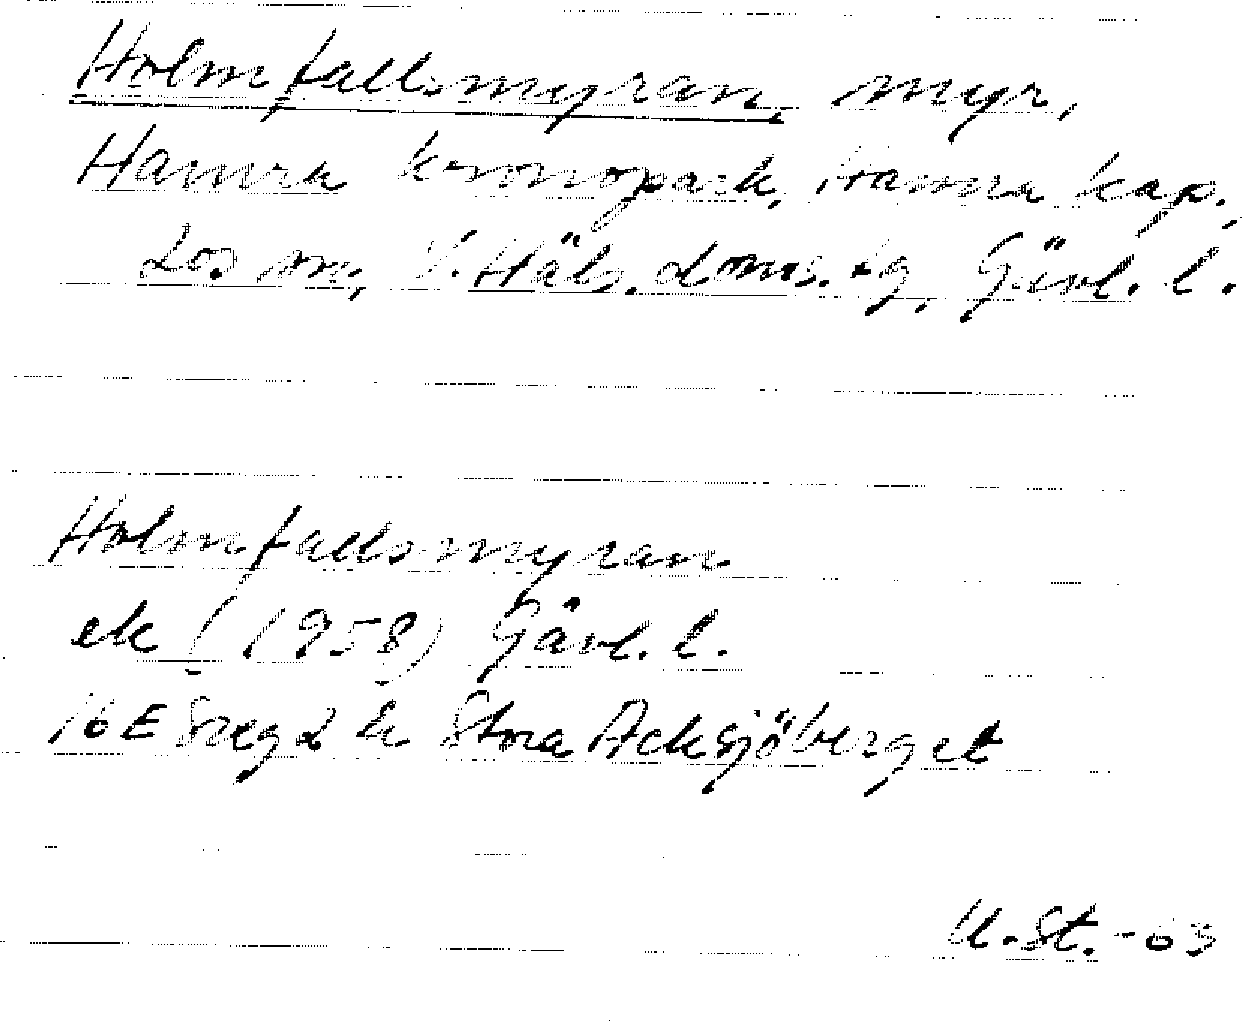 Holmfallsmyran, myr,
Hamra kronopark, Hamra kap.,
Los sn, V. Häls. doms. tg, Gävl. l.
Holmfallsmyran
ek (1958) Gävl. l.
16 E Stora Acksjöberget
U. St. -63